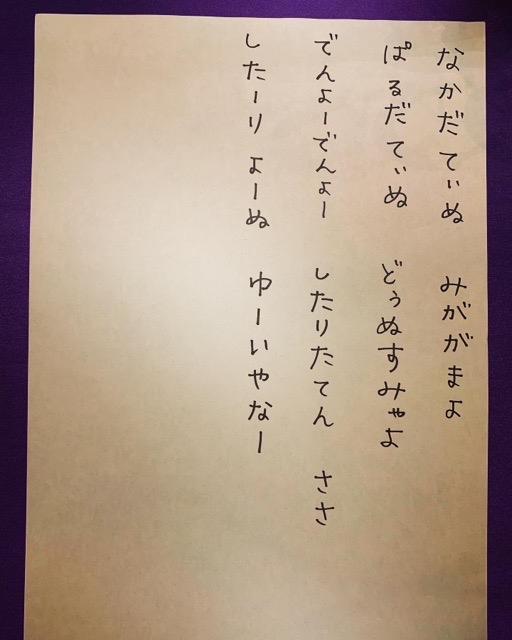 なかだてぃぬ みががまよ
ぱるだてぃぬ どぅぬすみゃよ
でんよーでんよー したりたてん ささ
したーり よーぬ ゆーいやなー